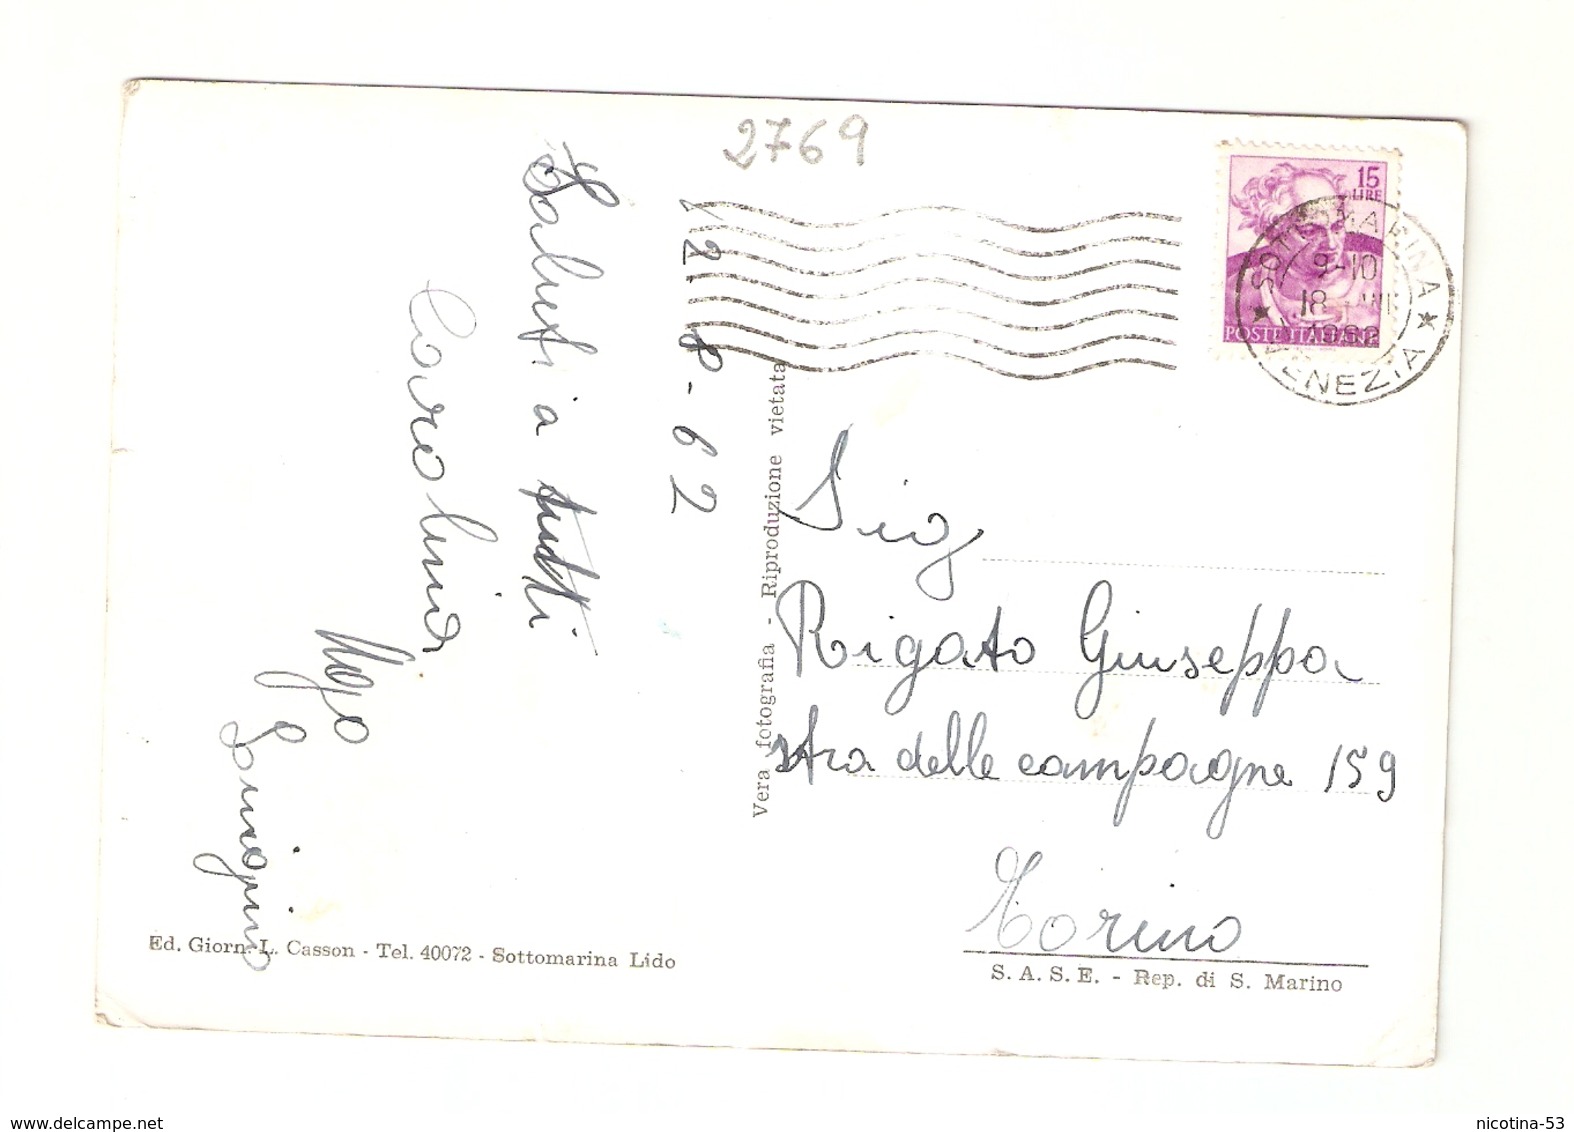 2769
15
LIRE
POSTE ITALIANE
SOTTOMARINA
9-10
18
1962
★ VENEZIA ★
12-8-62
Saluti a tutti
Carolina
Ugo
Luigino
Vera fotografia - Riproduzione vietata
Sig
Rigato Giuseppa
stra delle campagne 159
Torino
Ed. Giorn. L. Casson - Tel. 40072 - Sottomarina Lido
S. A. S. E. - Rep. di S. Marino
www.delcampe.net
nicotina-53